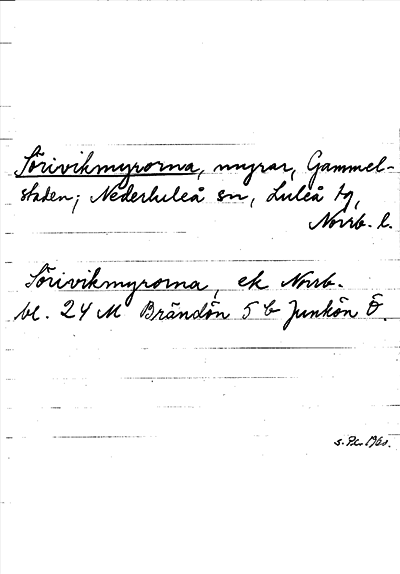 Sörivikmyrorna, myrar, Gammel-
staden; Nederluleå sn, Luleå tg,
Norrb. l.
Sörivikmyrorna, ek Norrb.
bl. 24 M Brändön 5 C Junkön Ö.
s. 1960.